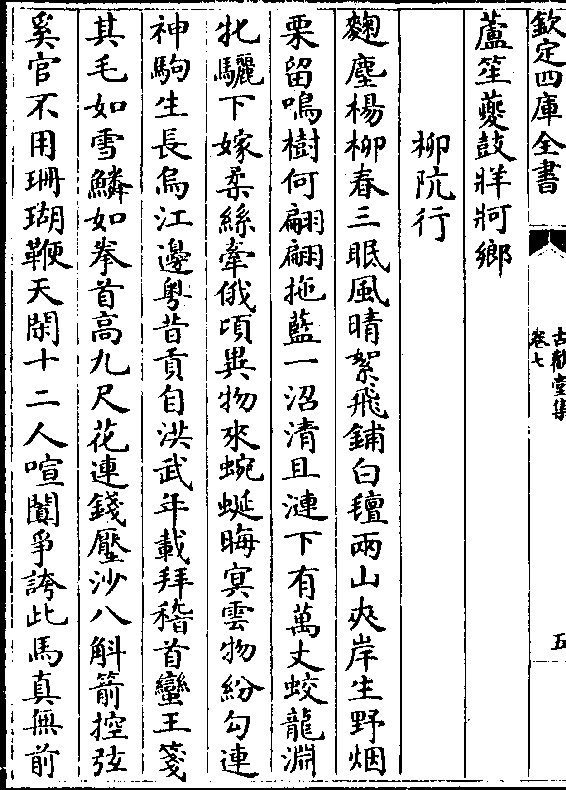 欽定四庫全書
古歡堂集
卷七
五
蘆笙夔鼓牂牁鄉
柳阬行
麴塵楊柳春三眠風晴絮飛鋪白氊兩山夾岸生野烟
栗留鳴樹何翩翩拖藍一沼清且漣下有萬丈蛟龍淵
牝驪下嫁柔絲牽俄頃異物來蜿蜒晦冥雲物紛勾連
神駒生長烏江邊粤昔貢自洪武年載拜稽首蠻王箋
其毛如雪鱗如拳首高九尺花連錢壓沙八斛箭控弦
奚官不用珊瑚鞭天閑十二人喧闐爭誇此馬真無前